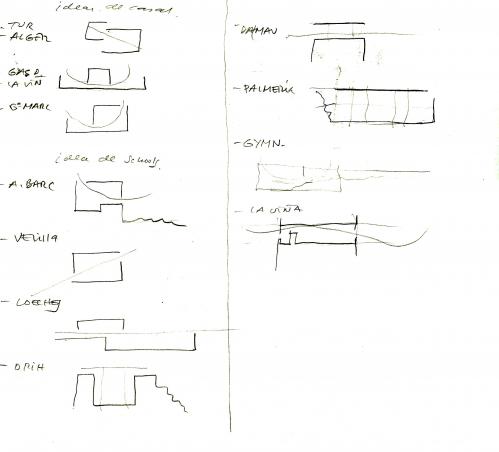 ideas de casas
- TUR
- ALGER
GAS D.
LA VIN
- Gª MARC
idea de schools.
- A. BARC
- VELILLA
- LOECHES
- ORIH
- DAIMAN
- PALMERIA
- GYMN-
- LA VIÑA